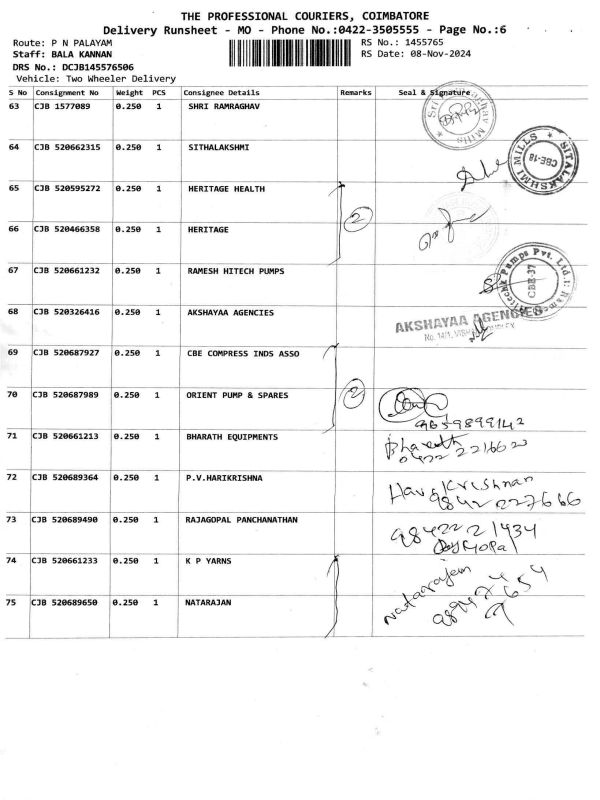 THE PROFESSIONAL COURIERS, COIMBATORE
Delivery Runsheet - MO - Phone No.:0422-3505555 - Page No.:6
Route: P N PALAYAM RS No.: 1455765
Staff: BALA KANNAN RS Date: 08-Nov-2024
DRS No.: DCJB145576506
Vehicle: Two Wheeler Delivery
S No Consignment No Weight PCS Consignee Details Remarks Seal & Signature
63 CJB 1577089 0.250 1 SHRI RAMRAGHAV
64 CJB 520662315 0.250 1 SITHALAKSHMI SITALAKSHMI MILLS CBE-18
65 CJB 520595272 0.250 1 HERITAGE HEALTH
2
66 CJB 520466358 0.250 1 HERITAGE
67 CJB 520661232 0.250 1 RAMESH HITECH PUMPS CBE-37
68 CJB 520326416 0.250 1 AKSHAYAA AGENCIES AKSHAYAA AGENCIES
69 CJB 520687927 0.250 1 CBE COMPRESS INDS ASSO
70 CJB 520687989 0.250 1 ORIENT PUMP & SPARES 2
9659899142
71 CJB 520661213 0.250 1 BHARATH EQUIPMENTS Bharath
0422 2216623
72 CJB 520689364 0.250 1 P.V.HARIKRISHNA
9842 227666
73 CJB 520689490 0.250 1 RAJAGOPAL PANCHANATHAN 9842221434
74 CJB 520661233 0.250 1 K P YARNS Natarajan
75 CJB 520689650 0.250 1 NATARAJAN